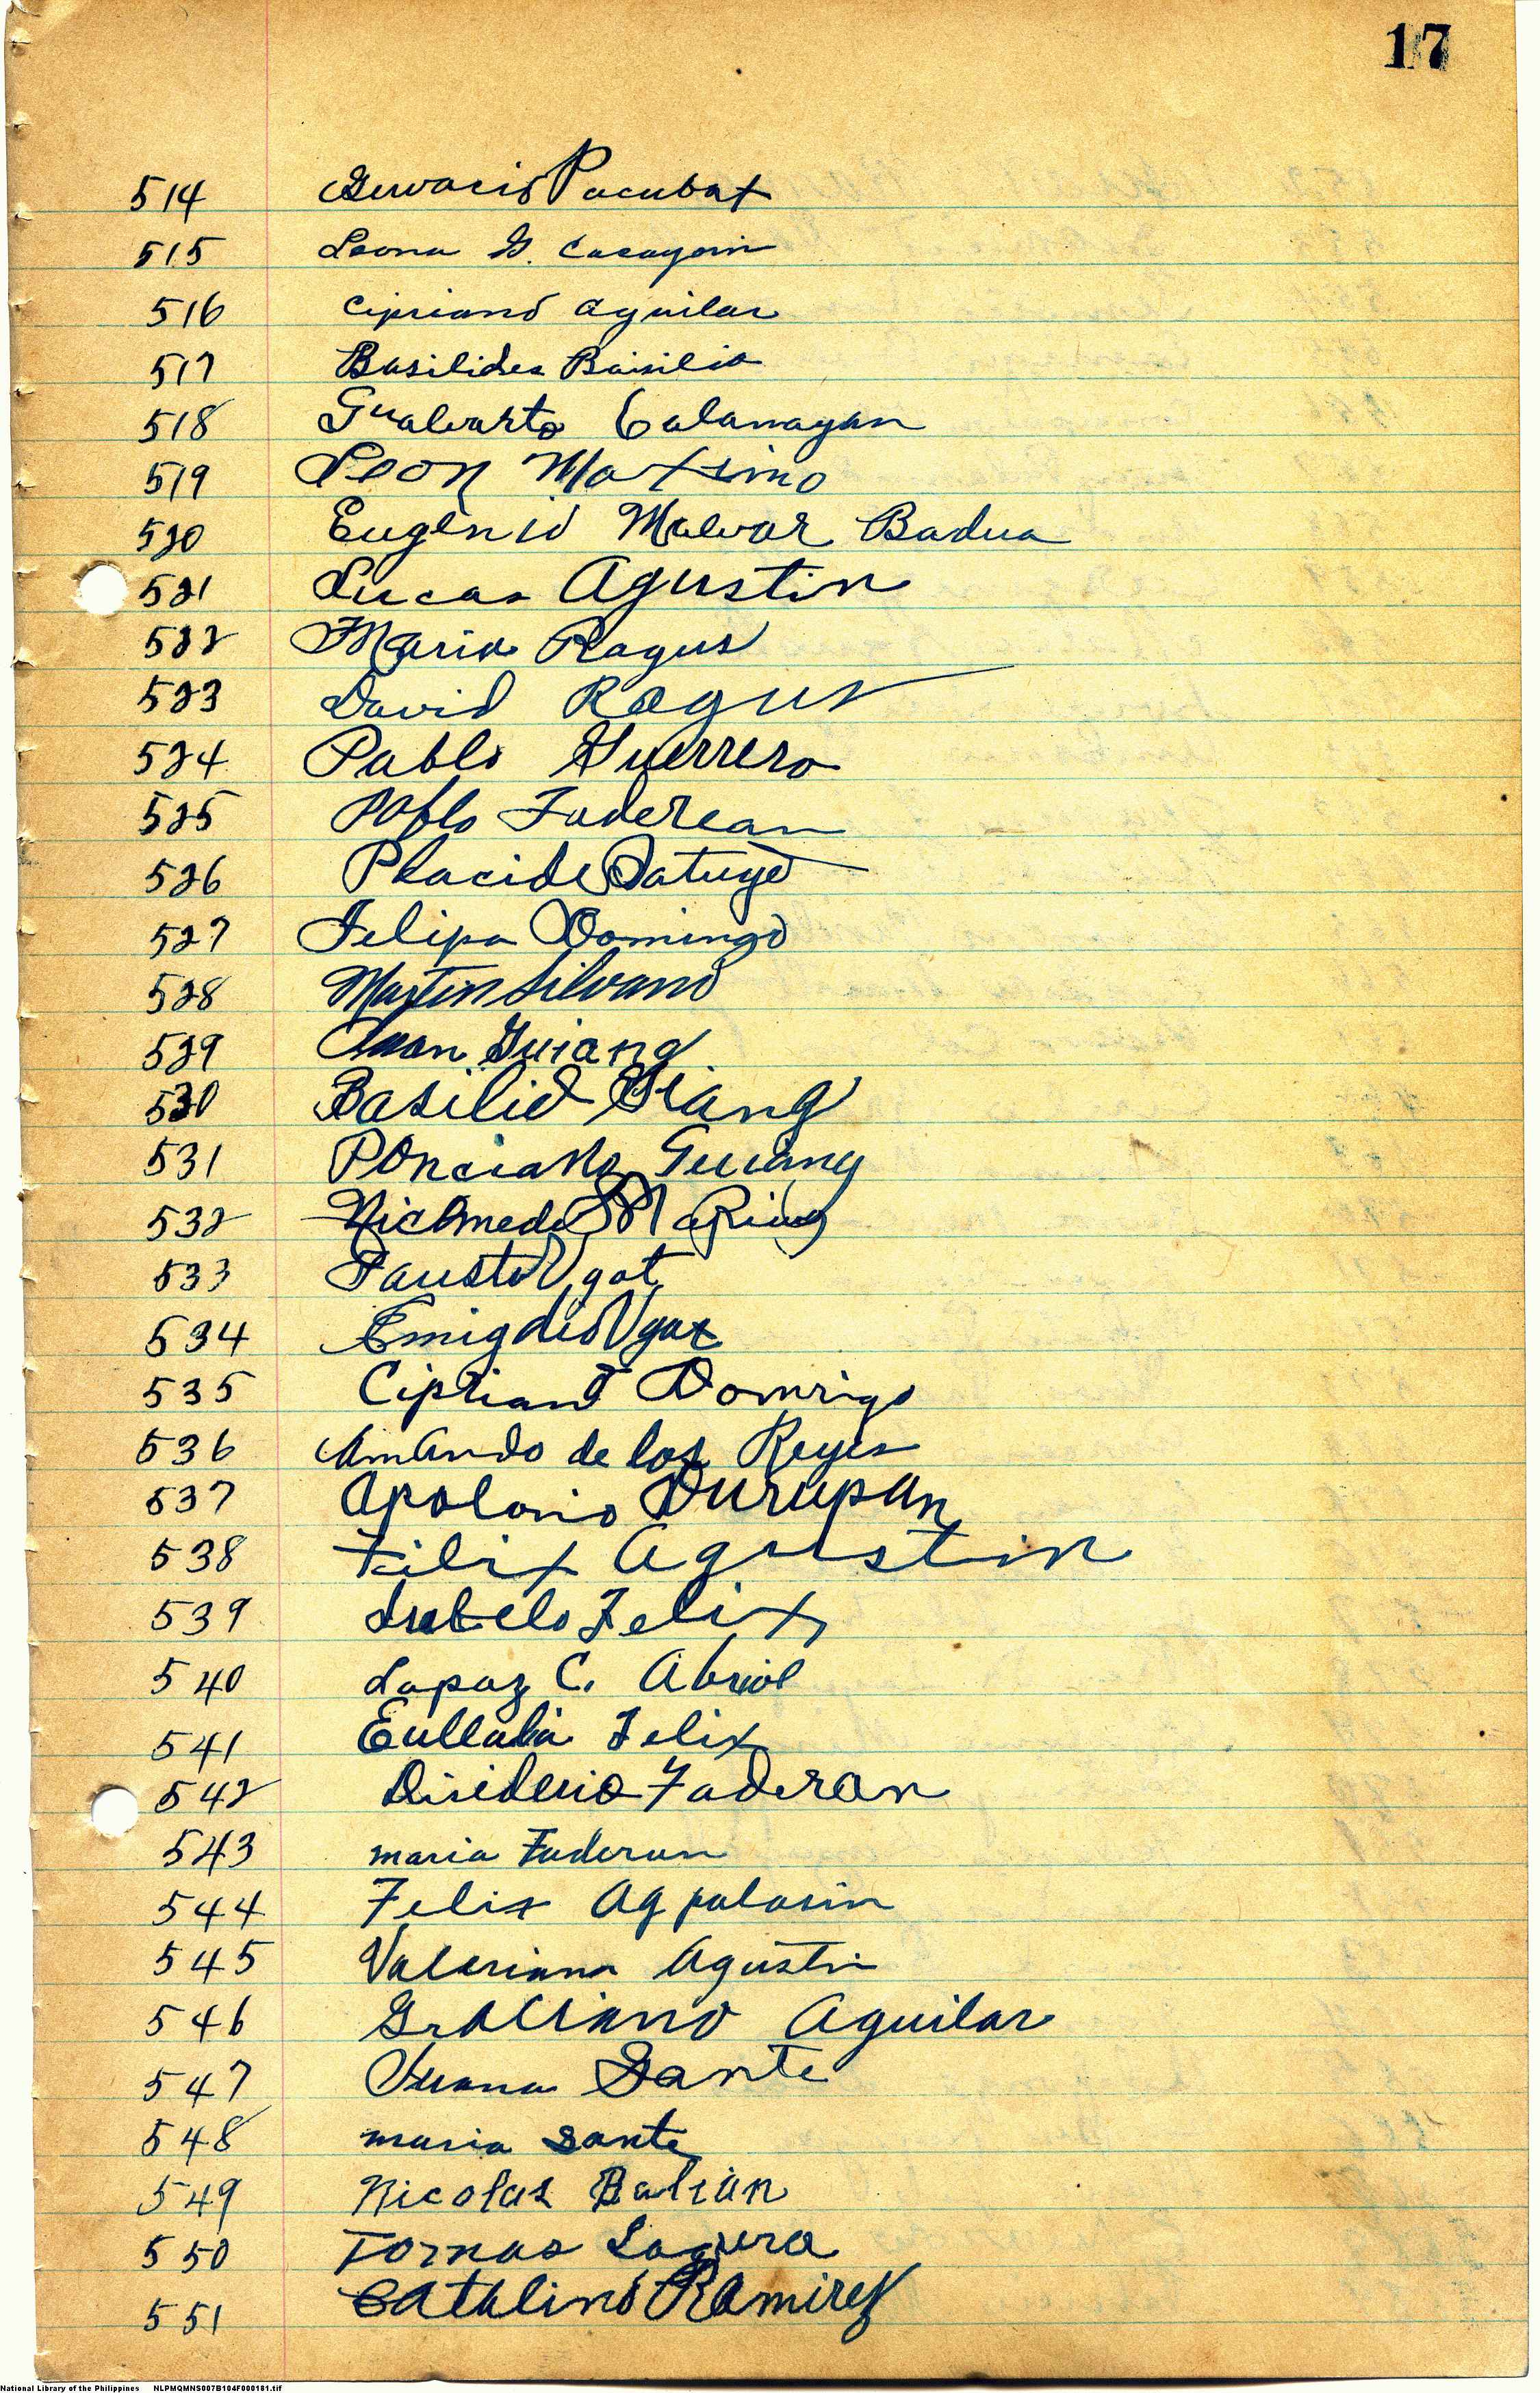 17
514 Gervacio Pacubat
515 Leona G. Casayorin
516 Cipriano Aguilar
517 Basilides Baisilio
518 Gualvarto Calamayan
519 Leon Maximo
520 Eugenio Malvar Badua
521 Lucas Agustin
522 Maria Ragus
523 David Ragus
524 Pablo Guerrero
525 Pablo Faderean
526 Placido Datuge
527 Felipa Domingo
528 Martin Silvano
529 Juan Guiang
530 Basilio Giang
531 Ponciano Guiang
532 Nicomedes
533 Fausto Ygot
534 Emigdio Ygot
535 Cipriano Domingo
536 Amando de los Reyes
537 Apolonio Durupan
538 Filix Agustin
539 Felix
540 Lapaz C. Abriol
541 Eullalia Felix
542 Disiderio Faderan
543 maria Faderan
544 Felix Agpalasin
545 Valeriana Agustin
546 Graciano Aguilar
547 Juana Sante
548 maria Sante
549 Nicolas Balian
550 Tomas Lagura
551 Catalino Ramirez
National Library of the Philippines NLPMQMNS007B104F000181.tif